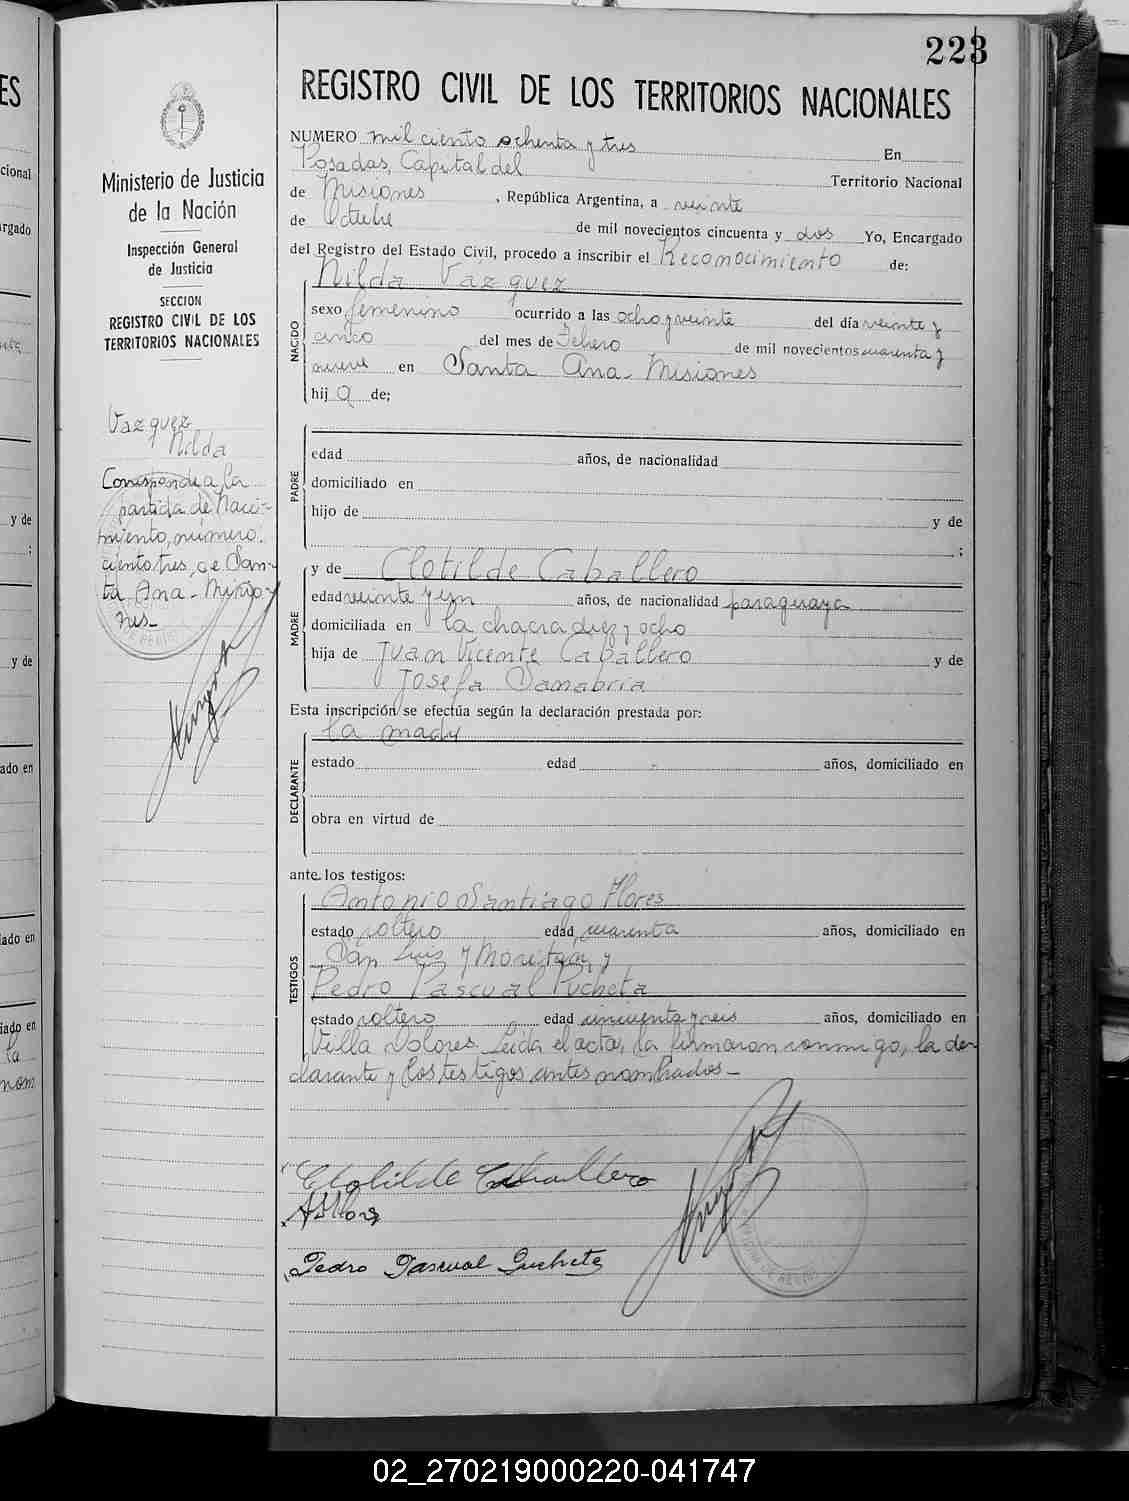 223
REGISTRO CIVIL DE LOS TERRITORIOS NACIONALES
Ministerio de Justicia
de la Nación
Inspección General
de Justicia
SECCION
REGISTRO CIVIL DE LOS
TERRITORIOS NACIONALES
Vazquez
Nilda
Corresponde a la
partida de Naci-
miento, número
ciento tres, de San-
ta Ana - Misio-
nes -
NUMERO mil ciento ochenta y tres En
Posadas, Capital del Territorio Nacional
de Misiones, República Argentina, a veinte
de Octubre de mil novecientos cincuenta y dos Yo, Encargado
del Registro del Estado Civil, procedo a inscribir el Reconocimiento de:
Nilda Vazquez
NACIDO
sexo femenino ocurrido a las ocho y veinte del día veinte y
cinco del mes de Febrero de mil novecientos cuarenta y
nueve en Santa Ana - Misiones
hij a de;
PADRE
edad años, de nacionalidad
domiciliado en
hijo de y de
;
MADRE
y de Clotilde Caballero
edad veinte y un años, de nacionalidad paraguaya
domiciliada en la chacra diez y ocho
hija de Juan Vicente Caballero y de
Josefa Sanabria
Esta inscripción se efectúa según la declaración prestada por:
la madre
DECLARANTE
estado edad años, domiciliado en
obra en virtud de
ante los testigos:
Antonio Santiago Flores
TESTIGOS
estado soltero edad cuarenta años, domiciliado en
San Luis y Moritán, y
Pedro Pascual Pucheta
estado soltero edad cincuenta y seis años, domiciliado en
Villa Dolores. Leída el acta, la firmaron conmigo, la de-
clarante y los testigos antes nombrados -
Clotilde Caballero
ASFlores
Pedro Pascual Pucheta
ES
cional
argado
y de
;
y de
ado en
iado en
iado en
la
nom
02_270219000220-041747